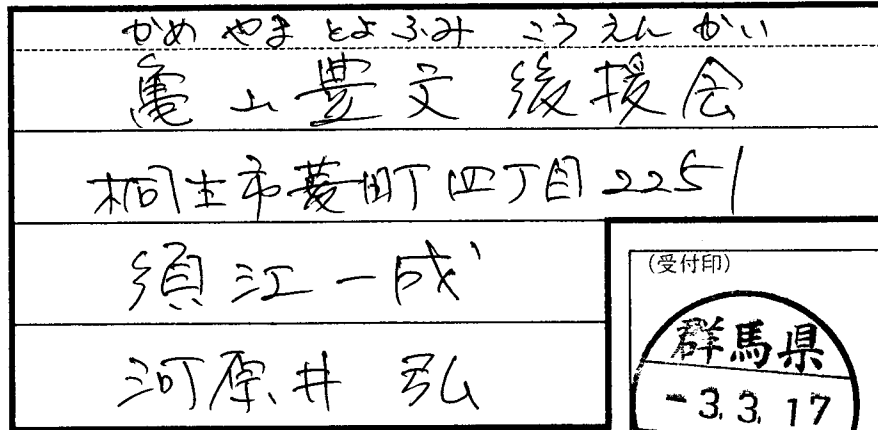 かめ やま とよ ふみ こう えん かい
亀山豊文後援会
桐生市菱町四丁目2251
須江一成
河原井 弘
(受付印)
群馬県
-3.3.17